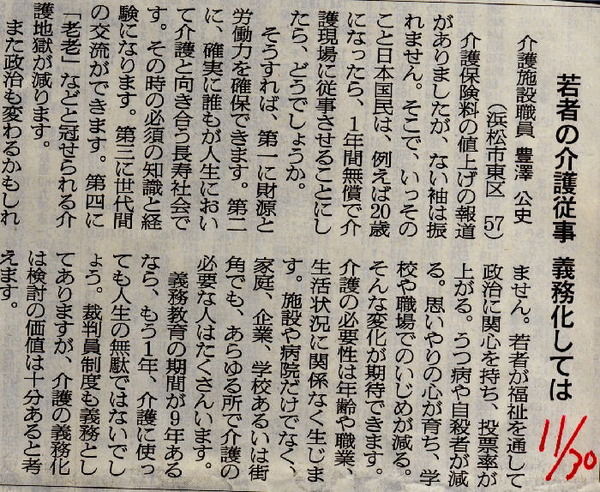 若者の介護従事 義務化しては
介護施設職員 豊澤 公史
(浜松市東区 57)
介護保険料の値上げの報道
がありましたが、ない袖は振
れません。そこで、いっその
こと日本国民は、例えば20歳
になったら、1年間無償で介
護現場に従事させることにし
たら、どうでしょうか。
そうすれば、第一に財源と
労働力を確保できます。第二
に、確実に誰もが人生におい
て介護と向き合う長寿社会で
す。その時の必須の知識と経
験になります。第三に世代間
の交流ができます。第四に
「老老」などと冠せられる介
護地獄が減ります。
また政治も変わるかもしれ
ません。若者が福祉を通して
政治に関心を持ち、投票率が
上がる。うつ病や自殺者が減
る。思いやりの心が育ち、学
校や職場でのいじめが減る。
そんな変化が期待できます。
介護の必要性は年齢や職業、
生活状況に関係なく生じま
す。施設や病院だけでなく、
家庭、企業、学校あるいは街
角でも、あらゆる所で介護の
必要な人はたくさんいます。
義務教育の期間が9年ある
なら、もう1年、介護に使っ
ても人生の無駄ではないでし
ょう。裁判員制度も義務とし
てありますが、介護の義務化
は検討の価値は十分あると考
えます。
11/30